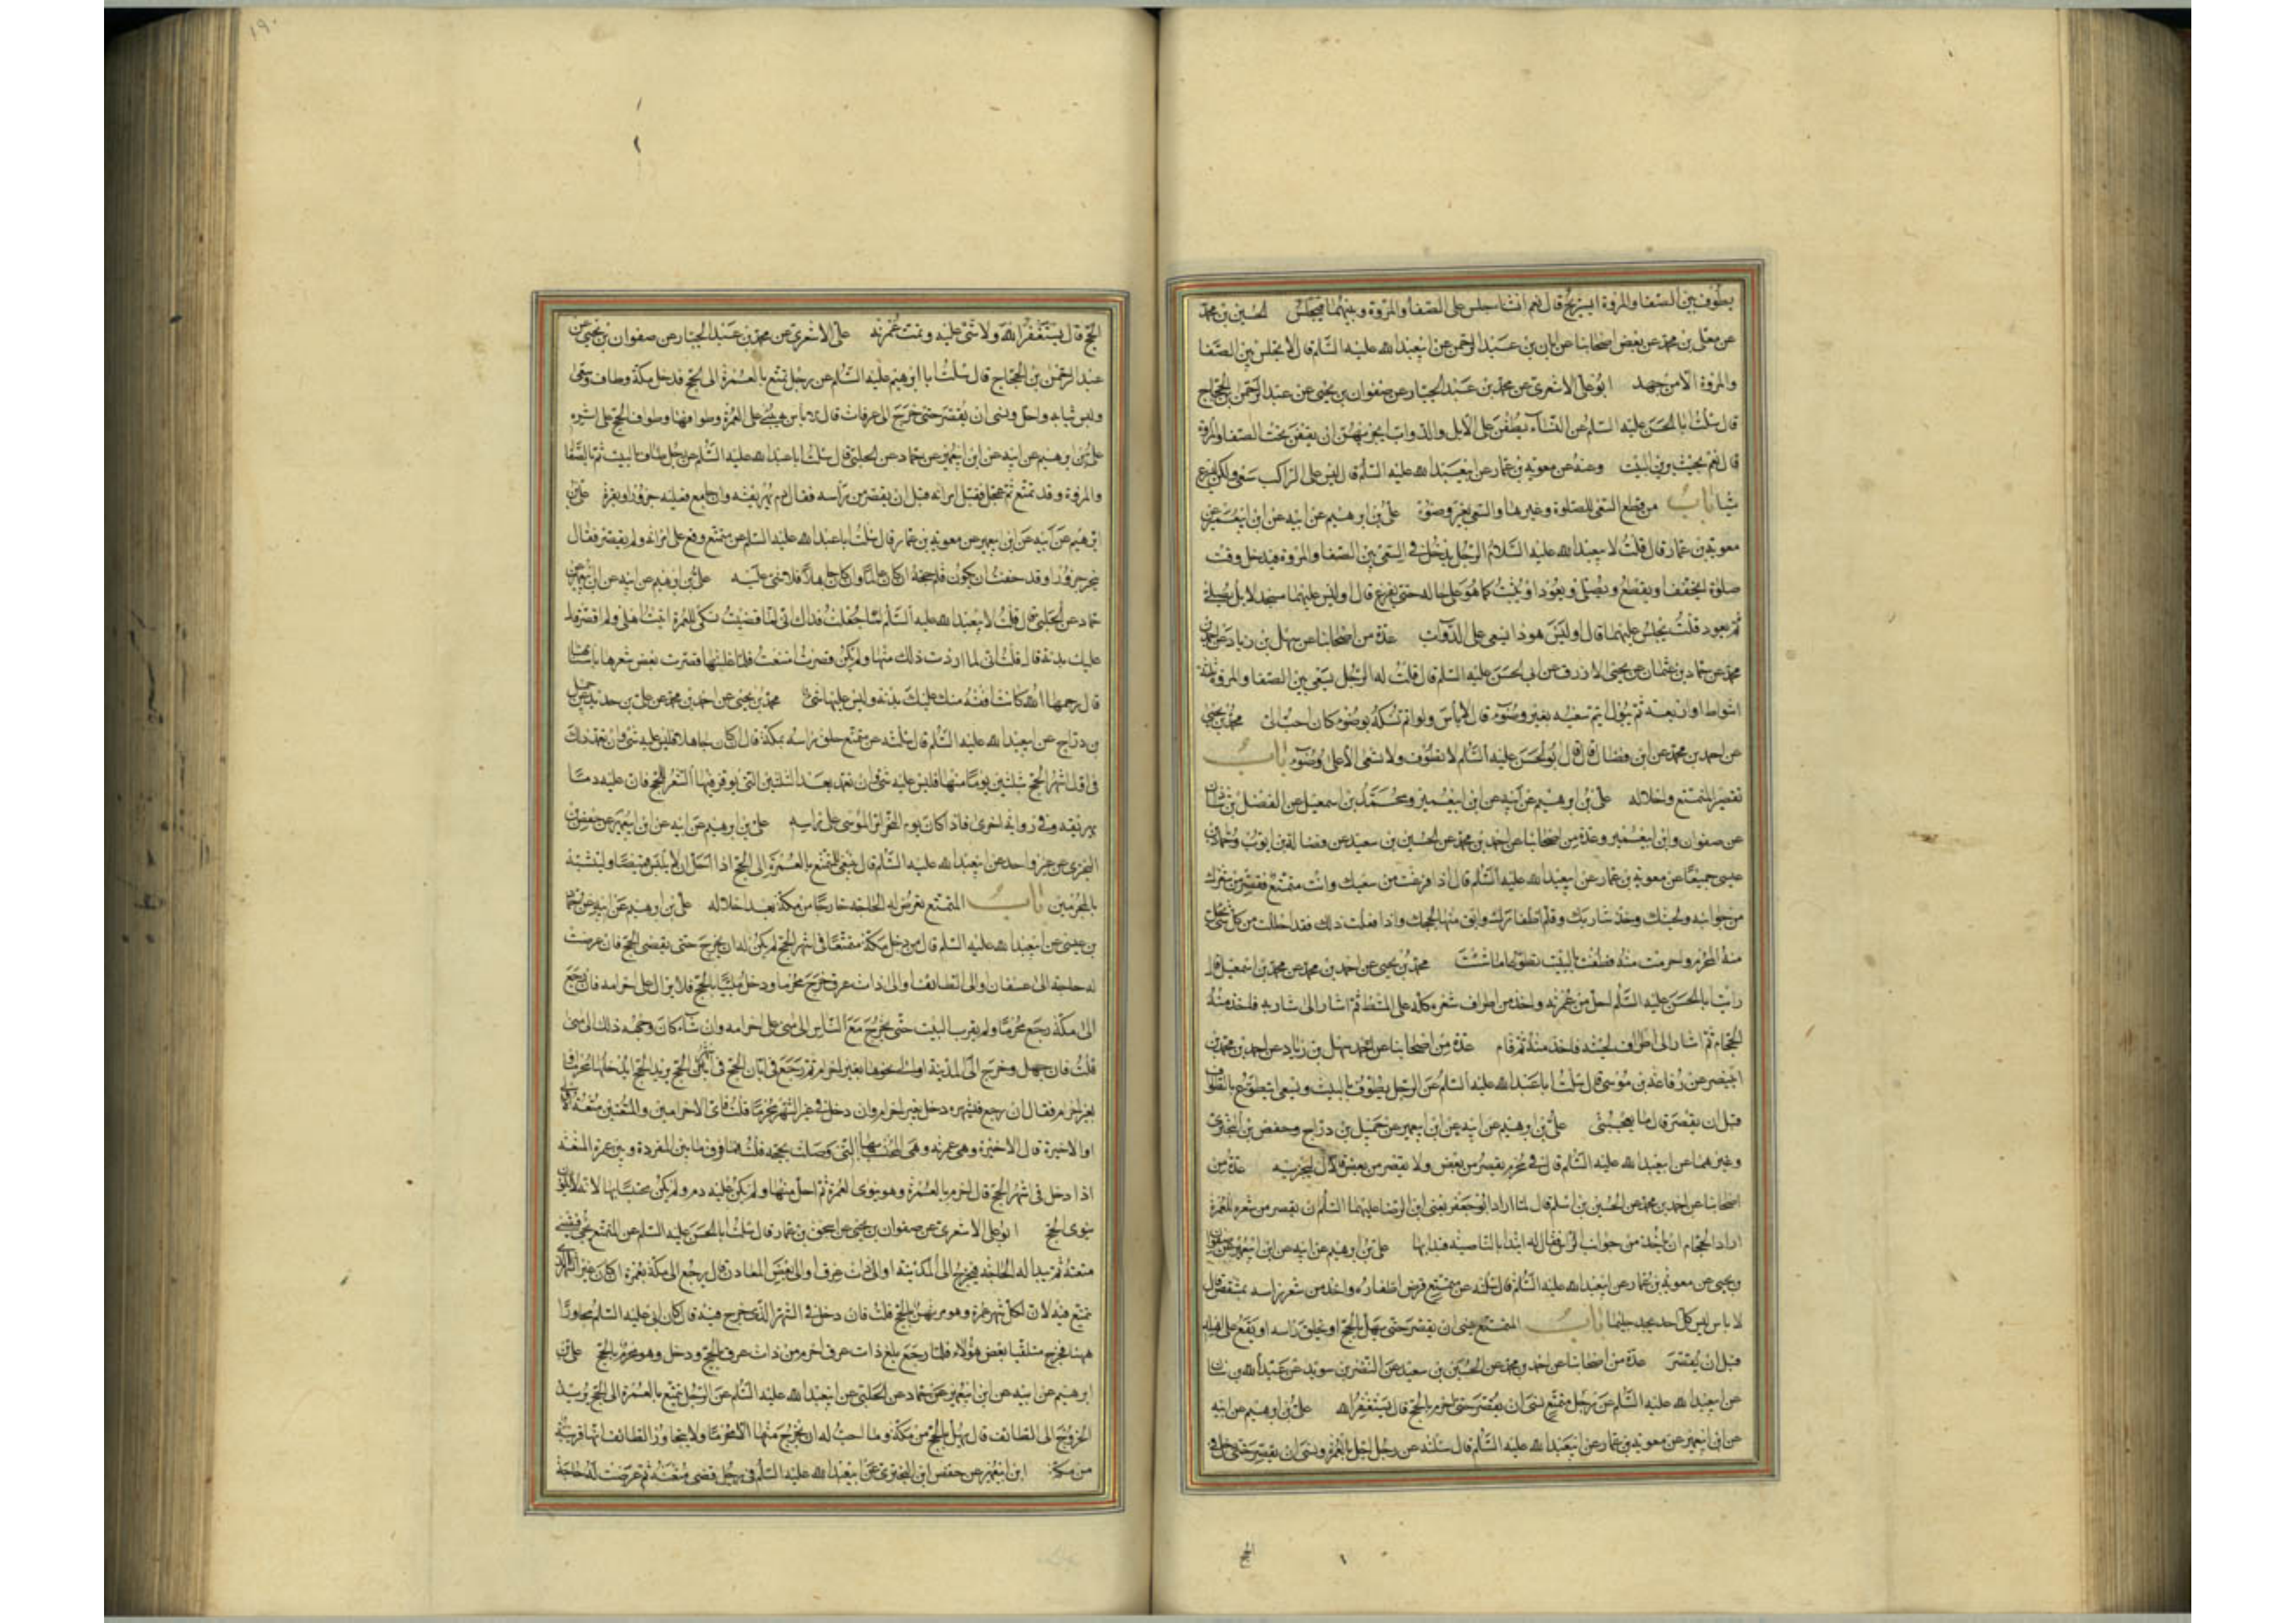 يطوف بين الصفا والمروة ايستريح قال نعم ان شا جلس على الصفا والمروة وبينهما فيجلس الحسين بن محمد
عن معلى بن محمد عن بعض اصحابنا عن ابان بن عبد الرحمن عن ابيعبد الله عليه السلم قال لا يجلس بين الصفا
والمروة الا من جهد ابو على الاشعرى عن محمد بن عبد الجبار عن صفوان بن يحيى عن عبد الرحمن بن الحجاج
قال سئلت ابا الحسن عليه السلم عن النسآء يطفن على الابل والدواب ايجزيهن ان يقفن تحت الصفا والمروة
قال نعم بحيث يرين البيت وعنه عن معويه بن عمار عن ابيعبد الله عليه السلم قال ليس على الراكب سعى ولكن ليسرع
شيئا باب من قطع السعى للصلوة وغيرها والسعى بغير وضوء على بن ابرهيم عن ابيه عن ابن ابيعمير عن
معويه بن عمار قال قلت لابيعبد الله عليه السلام الرجل يدخل فى السعى بين الصفا والمروة فيدخل وقت
صلوة ايخفف او يقطع ويصلى ويعود او يثبت كما هو على حاله حتى يفرغ قال اوليس عليهما مسجد لا بل يصلى
ثم يعود قلت يجلس عليهما قال اوليس هو ذا يسعى على الدواب عدة من اصحابنا عن سهل بن زياد عن احمد بن
محمد عن حماد بن عثمان عن يحيى الازرق عن ابى الحسن عليه السلم قال قلت له الرجل يسعى بين الصفا والمروة ثلثة
اشواط او اربعة ثم يبول ايتم سعيه بغير وضوء قال لا بأس ولو اتم نسكه بوضوء كان احب الى محمد بن يحيى
عن احمد بن محمد عن ابن فضال قال قال ابو الحسن عليه السلم لا تطوف ولا تسعى الا على وضوء باب
تقصير المتمتع واحلاله على بن ابرهيم عن ابيه عن ابن ابيعمير ومحمد بن اسمعيل عن الفضل بن شاذان
عن صفوان وابن ابيعمير وعدة من اصحابنا عن احمد بن محمد عن الحسين بن سعيد عن فضالة بن ايوب وحماد بن
عيسى جميعا عن معويه بن عمار عن ابيعبد الله عليه السلم قال اذا فرغت من سعيك وانت متمتع فقصر من شعرك
من جوانبه ولحيتك وخذ شاربك وقلم اظفارك وابق منها لحجك واذا فعلت ذلك فقد احللت من كل شئ يحل
منه المحرم واحرمت منه فطف بالبيت تطوعا ما شئت محمد بن يحيى عن احمد بن محمد عن محمد بن اسمعيل قال
رأيت ابا الحسن عليه السلم احل من عمرته واخذ من اطراف شعره كله على المشط ثم اشار الى شاربه فاخذ منه
الحجام ثم اشار الى اطراف لحيته فاخذ منه ثم قام عدة من اصحابنا عن سهل بن زياد عن احمد بن محمد بن
ابينصر عن رفاعة بن موسى قال سئلت ابا عبد الله عليه السلم عن الرجل يطوف بالبيت ويسعى ايتطوع بالطواف
قبل ان يقصر قال ما يعجبنى على بن ابرهيم عن ابيه عن ابن ابيعمير عن جميل بن دراج وحفص بن البخترى
وغيرهما عن ابيعبد الله عليه السلم قال فى محرم يقصر من بعض ولا يقصر من بعض قال يجزيه عدة من
اصحابنا عن احمد بن محمد عن الحسين بن اسلم قال لما اراد ابو جعفر يعنى ابن الرضا عليهما السلم ان يقصر من شعره للعمرة
اراد الحجام ان ياخذ من جوانب الراس فقال له ابدأ بالناصية فبدا بها على بن ابرهيم عن ابيه عن ابن ابيعمير عن صفوان
بن يحيى عن معويه بن عمار عن ابيعبد الله عليه السلم قال سئلته عن متمتع قرض اظفاره واخذ من شعر راسه بمشقص قال
لا باس ليس كل احد يجد جلما باب المتمتع ينسى ان يقصر حتى يهل بالحج او يحلق راسه او يقع على اهله
قبل ان يقصر عدة من اصحابنا عن احمد بن محمد عن الحسين بن سعيد عن النضر بن سويد عن عبد الله بن سنان
عن ابيعبد الله عليه السلم عن رجل متمتع نسى ان يقصر حتى احرم بالحج قال يستغفر الله على بن ابرهيم عن ابيه
عن ابن ابيعمير عن معويه بن عمار عن ابيعبد الله عليه السلم قال سئلته عن رجل اهل بالعمرة ونسى ان يقصر حتى دخل فى
الحج
١٩٠
الحج قال يستغفر الله ولا شئ عليه وتمت عمرته على الاشعرى عن محمد بن عبد الجبار عن صفوان بن يحيى عن
عبد الرحمن بن الحجاج قال سئلت ابا ابرهيم عليه السلم عن رجل تمتع بالعمرة الى الحج فدخل مكة وطاف وسعى
ولبس ثيابه واحل ونسى ان يقصر حتى خرج الى عرفات قال لا باس به يبنى على العمرة وطوافها وطواف الحج على اثره
على بن ابرهيم عن ابيه عن ابن ابيعمير عن حماد عن الحلبى قال سئلت ابا عبد الله عليه السلم عن رجل طاف بالبيت ثم بالصفا
والمروة وقد تمتع ثم عجل فقبل امراته قبل ان يقصر من رأسه فقال دم يهريقه وان جامع فعليه جزور او بقرة على بن
ابرهيم عن ابيه عن ابن ابيعمير عن معويه بن عمار قال سئلت ابا عبد الله عليه السلم عن متمتع وقع على امراته ولم يقصر فقال
ينحر جزورا وقد خفت ان يكون قد ثلم حجه ان كان عالما وان كان جاهلا فلا شئ عليه على بن ابرهيم عن ابيه عن ابن ابيعمير عن
حماد عن الحلبى قال قلت لابيعبد الله عليه السلم جعلت فداك انى لما قضيت نسكى للعمرة اتيت اهلى ولم اقصر قال
عليك بدنة قال قلت انى لما اردت ذلك منها ولم يكن قصرت امتنعت فلما غلبتها قصرت بعض شعرها باسنانها
قال رحمها الله كانت افقه منك عليك بدنة وليس عليها شئ محمد بن يحيى عن احمد بن محمد عن على بن حديد عن جميل
بن دراج عن ابيعبد الله عليه السلم قال سئلته عن متمتع حلق راسه بمكة قال ان كان جاهلا فليس عليه شئ وان تعمد ذلك
فى اول اشهر الحج بثلثين يوما منها فليس عليه شئ وان تعمد بعد الثلثين التى يوفر فيها الشعر للحج فان عليه دما
يهريقه وفى رواية اخرى فاذا كان يوم النحر امر الموسى على راسه على بن ابرهيم عن ابيه عن ابن ابيعمير عن حفص بن
البخترى عن غير واحد عن ابيعبد الله عليه السلم قال ينبغى للمتمتع بالعمرة الى الحج اذا احل ان لا يلبس قميصا وليتشبه
بالمحرمين باب المتمتع تعرض له الحاجة خارجا من مكة بعد احلاله على بن ابرهيم عن ابيه عن حماد
بن عيسى عن ابيعبد الله عليه السلم قال من دخل مكة متمتعا فى اشهر الحج لم يكن له ان يخرج حتى يقضى الحج فان عرضت
له حاجة الى عسفان والى الطائف او الى ذات عرق خرج محرما ودخل ملبيا بالحج فلا يزال على احرامه فان رجع
الى مكة رجع محرما ولم يقرب البيت حتى يخرج مع الناس الى منى على احرامه وان شاء كان وجهه ذلك الى منى
قلت فان جهل وخرج الى المدينة او الى نحوها بغير احرام ثم رجع فى ابان الحج فى اشهر الحج يريد الحج ايدخلها محرما او
بغير احرام فقال ان رجع فى شهره دخل بغير احرام وان دخل فى غير الشهر محرما قلت فاى الاحرامين والمتعتين متعة الاولى
او الاخيرة قال الاخيرة وهى عمرته وهى المحتبس بها التى وصلت بحجه قلت فما فرق ما بين المفردة وبين عمرة المتعة
اذا دخل فى اشهر الحج قال احرم بالعمرة وهو ينوى العمرة ثم احل منها ولم يكن عليه دم ولم يكن محتبسا بها لانه لا يكون
ينوى الحج ابو على الاشعرى عن صفوان بن يحيى عن اسحق بن عمار قال سئلت ابا الحسن عليه السلم عن المتمتع يجئ فيقضى
متعته ثم يبدا له الحاجة فيخرج الى المدينة او الى ذات عرق او الى بعض المعادن قال يرجع الى مكة بعمرة ان كان غير الشهر الذى
تمتع فيه لان لكل شهر عمرة وهو مرتهن بالحج قلت فان دخل فى الشهر الذى خرج فيه قال كان ابى عليه السلم مجاورا
ههنا فخرج متلقيا بعض هؤلاء فلما رجع بلغ ذات عرق احرم من ذات عرق بالحج ودخل وهو محرم بالحج على بن
ابرهيم عن ابيه عن ابن ابيعمير عن حماد عن الحلبى عن ابيعبد الله عليه السلم عن الرجل يتمتع بالعمرة الى الحج يريد
الخروج الى الطائف قال يهل بالحج من مكة وما احب له ان يخرج منها الا محرما ولا يتجاوز الطائف انها قريبة
من مكة ابن ابيعمير عن حفص ابن البخترى عن ابيعبد الله عليه السلم فى رجل قضى متعته ثم عرضت له حاجة